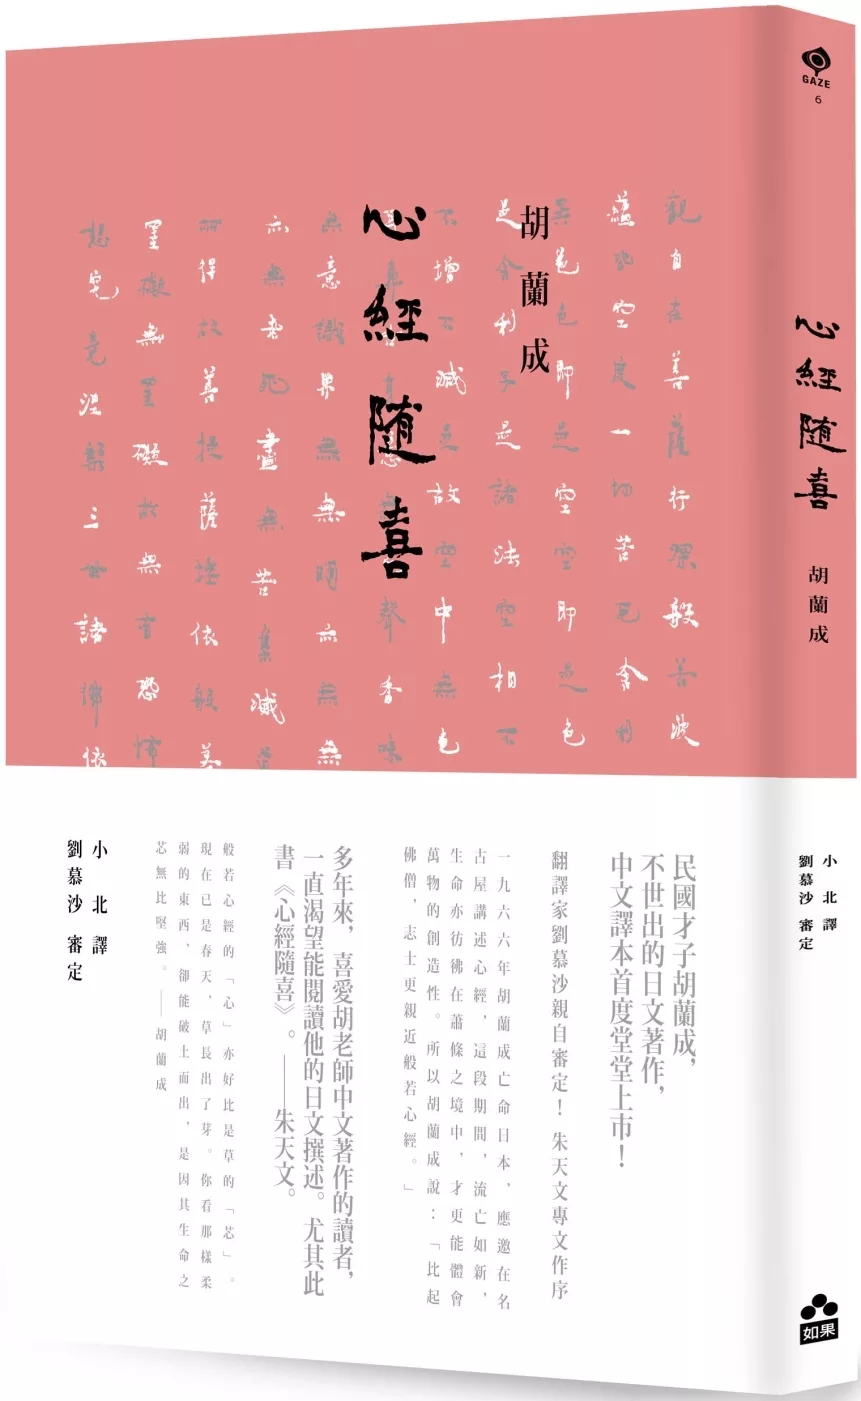 心經隨喜
胡蘭成
觀自在菩薩行深般若波
蘊皆空度一切苦厄舍利
異色色即是空空即是色
是舍利子是諸法空相不
不增不減是故空中無色
聲香味
無意識界無無明亦無無
亦無老死盡無苦集滅道
所得故菩提薩埵依般若
罣礙無罣礙故無有恐怖
想究竟涅槃三世諸佛依
民國才子胡蘭成，
不世出的日文著作，
中文譯本首度堂堂上市！
翻譯家劉慕沙親自審定！朱天文專文作序
一九六六年胡蘭成亡命日本，應邀在名
古屋講述心經，這段期間，流亡如新，
生命亦彷彿在蕭條之境中，才更能體會
萬物的創造性。所以胡蘭成說：「比起
佛僧，志士更親近般若心經。」
多年來，喜愛胡老師中文著作的讀者，
一直渴望能閱讀他的日文撰述。尤其此
書《心經隨喜》。——朱天文。
般若心經的「心」亦好比是草的「芯」。
現在已是春天，草長出了芽。你看那樣柔
弱的東西，卻能破土而出，是因其生命之
芯無比堅強。——胡蘭成
小北 譯
劉慕沙 審定
GAZE
6
心經隨喜
胡蘭成
小北 譯
劉慕沙 審定
如果